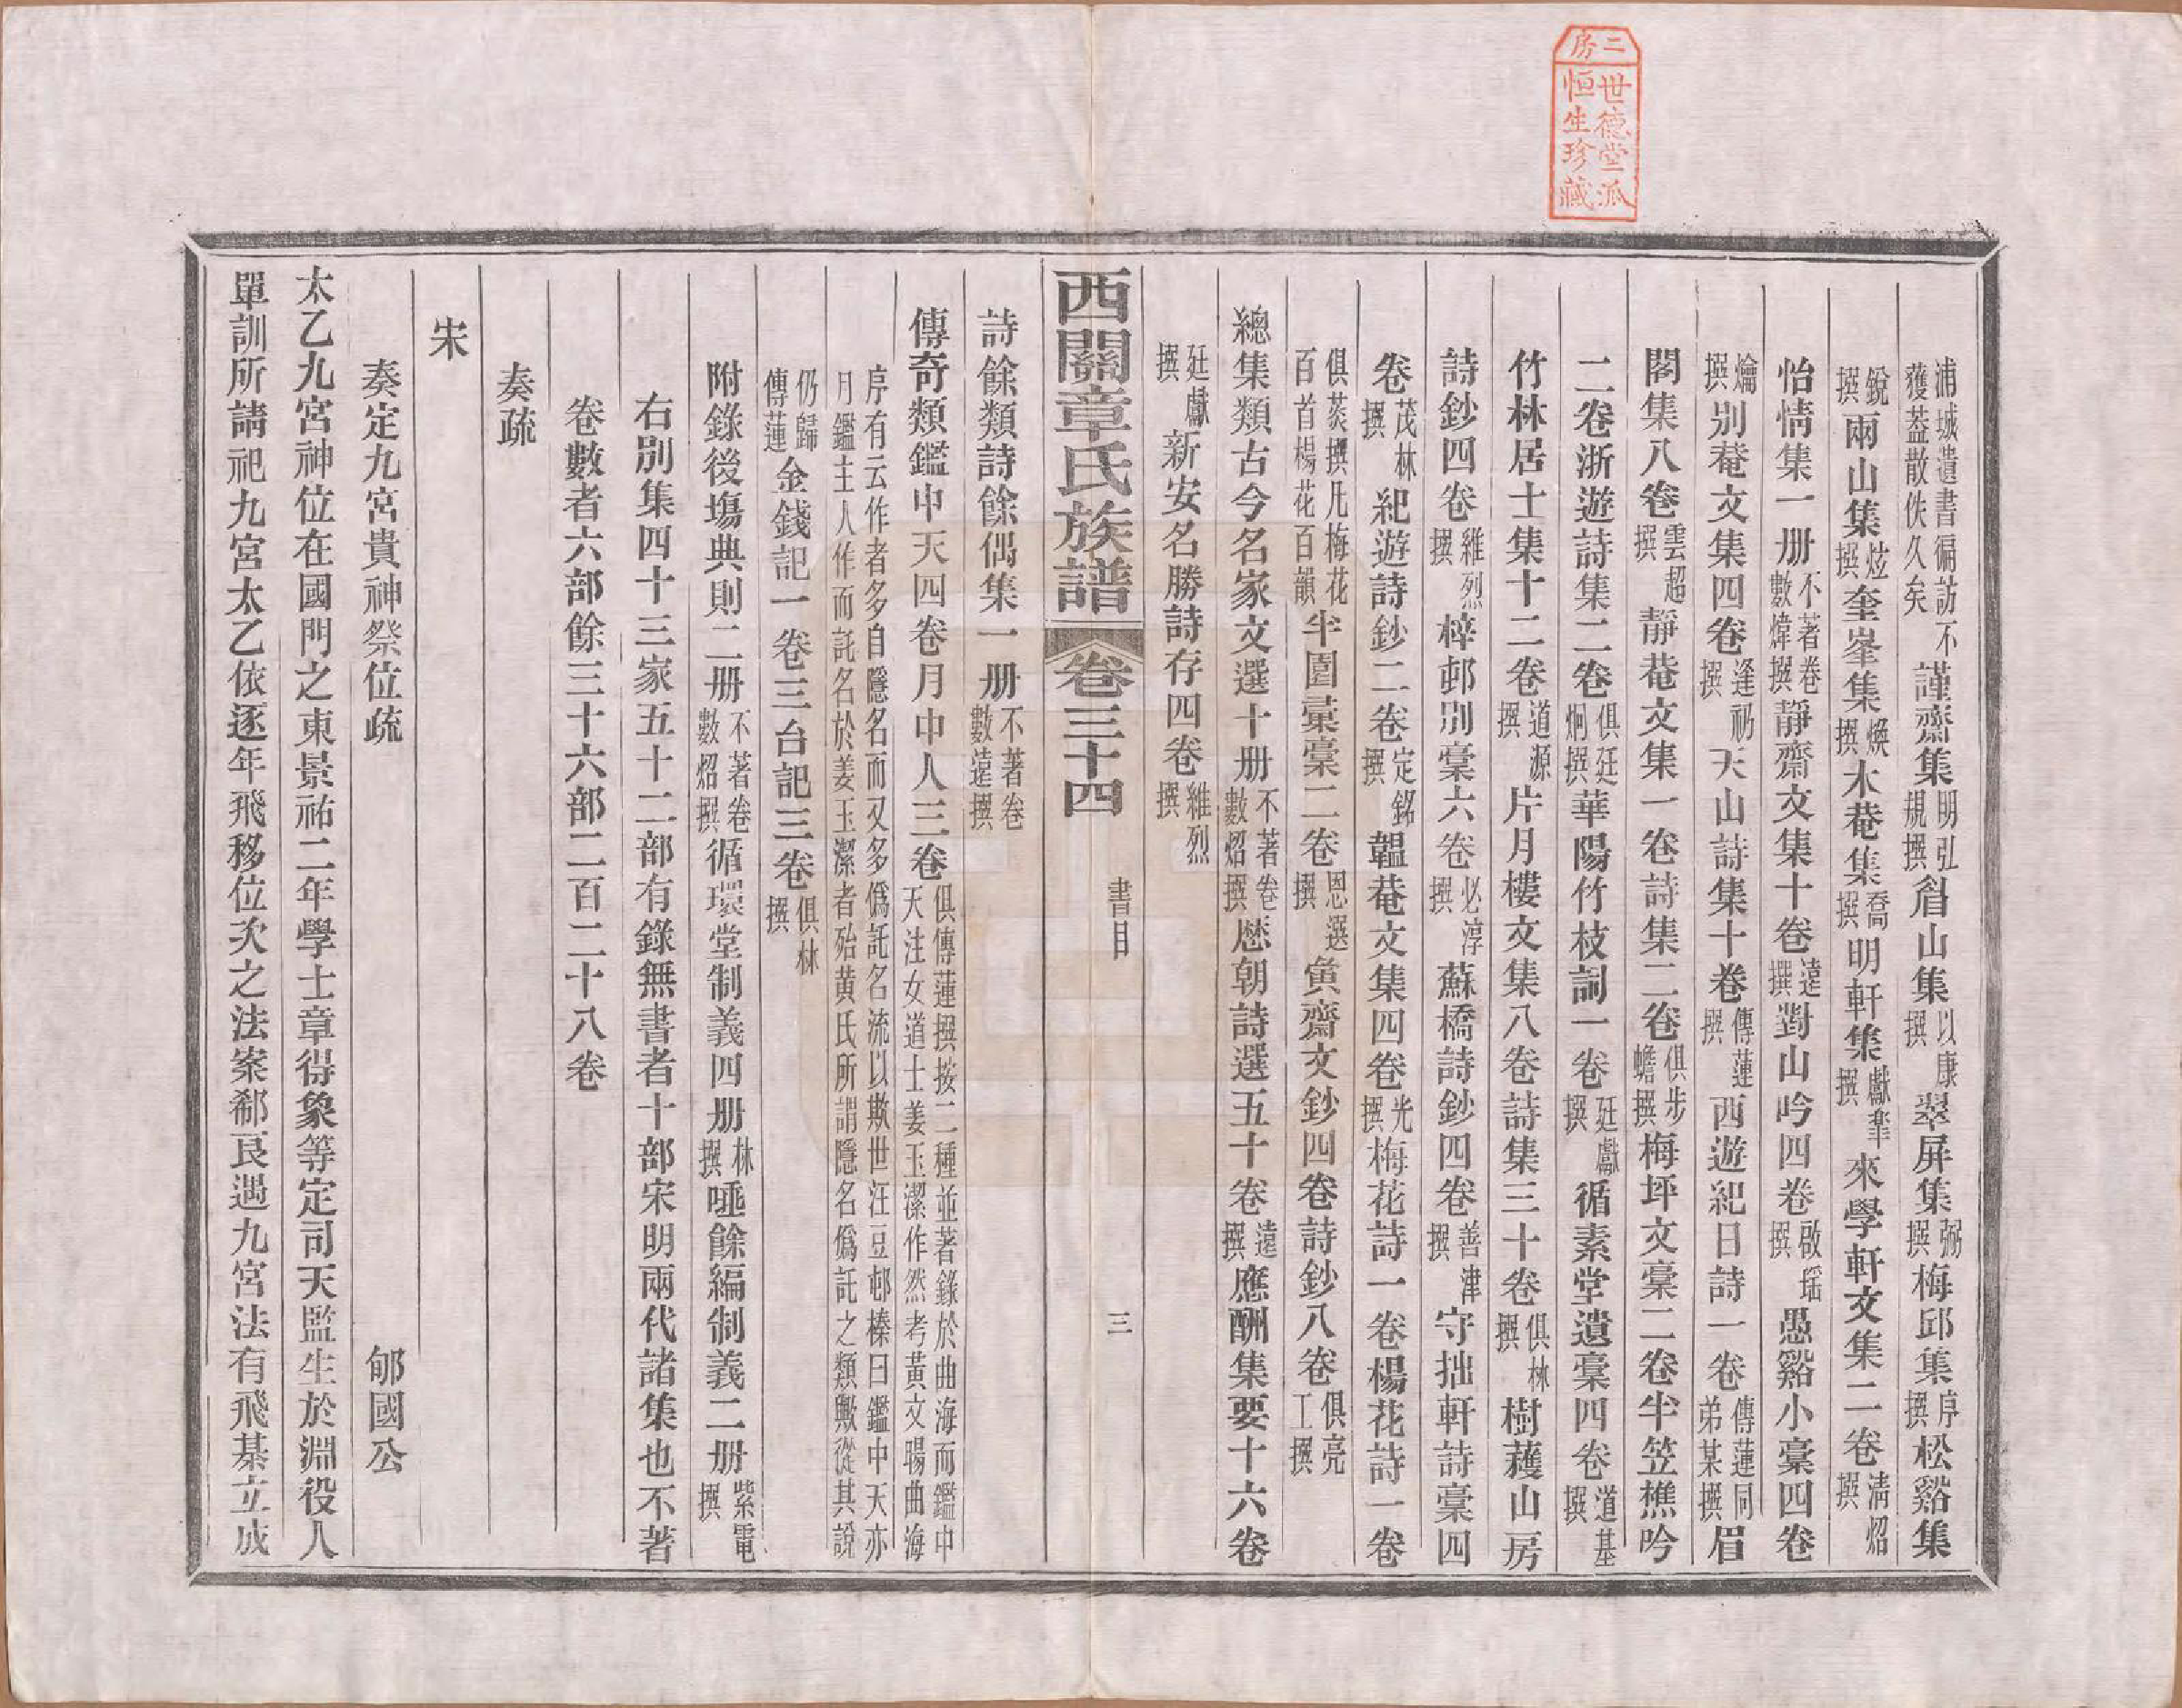 二房
世德堂派
恒生珍藏
浦城遺書徧訪不獲蓋散佚久矣 謹齋集明弘規撰 眉山集以康撰 翠屏集弼撰 梅邱集序撰 松谿集
銳撰 兩山集炫撰 奎峯集煥撰 木菴集喬撰 明軒集獻羣撰 來學軒文集二卷淸炤撰
怡情集一册不著卷數煒撰 靜齋文集十卷遠撰 對山吟四卷啟瑶撰 愚谿小稾四卷
爚撰 別菴文集四卷逢礽撰 天山詩集十卷傳蓮撰 西遊紀日詩一卷傳蓮同弟某撰 眉
閣集八卷雲超撰 靜菴文集一卷詩集二卷俱步蟾撰 梅坪文稾二卷半笠樵吟
二卷浙遊詩集二卷俱廷炯撰 華陽竹枝詞一卷廷獻撰 循素堂遺稾四卷道基撰
竹林居士集十二卷道源撰 片月樓文集八卷詩集三十卷俱林撰 樹蘐山房
詩鈔四卷維烈撰 梓邨別稾六卷必淳撰 蘇橋詩鈔四卷善津撰 守拙軒詩稾四
卷茂林撰 紀遊詩鈔二卷定銘撰 韞菴文集四卷光撰 梅花詩一卷楊花詩一卷
俱菼撰凡梅花百首楊花百韻 半園彙稾二卷恩選撰 寅齋文鈔四卷詩鈔八卷俱亮工撰
總集類古今名家文選十册不著卷數炤撰 歷朝詩選五十卷遠撰 應酬集要十六卷
廷獻撰 新安名勝詩存四卷維烈撰
西關章氏族譜 卷三十四 書目 三
詩餘類詩餘偶集一册不著卷數遠撰
傳奇類鑑中天四卷月中人三卷俱傳蓮撰按二種並著錄於曲海而鑑中天注女道士姜玉潔作然考黃文暘曲海
序有云作者多自隱名而又多僞託名流以欺世汪豆邨榛曰鑑中天亦月鑑主人作而託名於姜玉潔者殆黃氏所謂隱名僞託之類歟從其說
仍歸傳蓮 金錢記一卷三台記三卷俱林撰
附錄後塲典則二册不著卷數炤撰 循環堂制義四册林撰 唾餘編制義二册紫電撰
右別集四十三家五十二部有錄無書者十部宋明兩代諸集也不著
卷數者六部餘三十六部二百二十八卷
奏疏
宋
奏定九宮貴神祭位疏 郇國公
太乙九宮神位在國門之東景祐二年學士章得象等定司天監生於淵役人
單訓所請祀九宮太乙依逐年飛移位次之法案郗良遇九宮法有飛棊立成